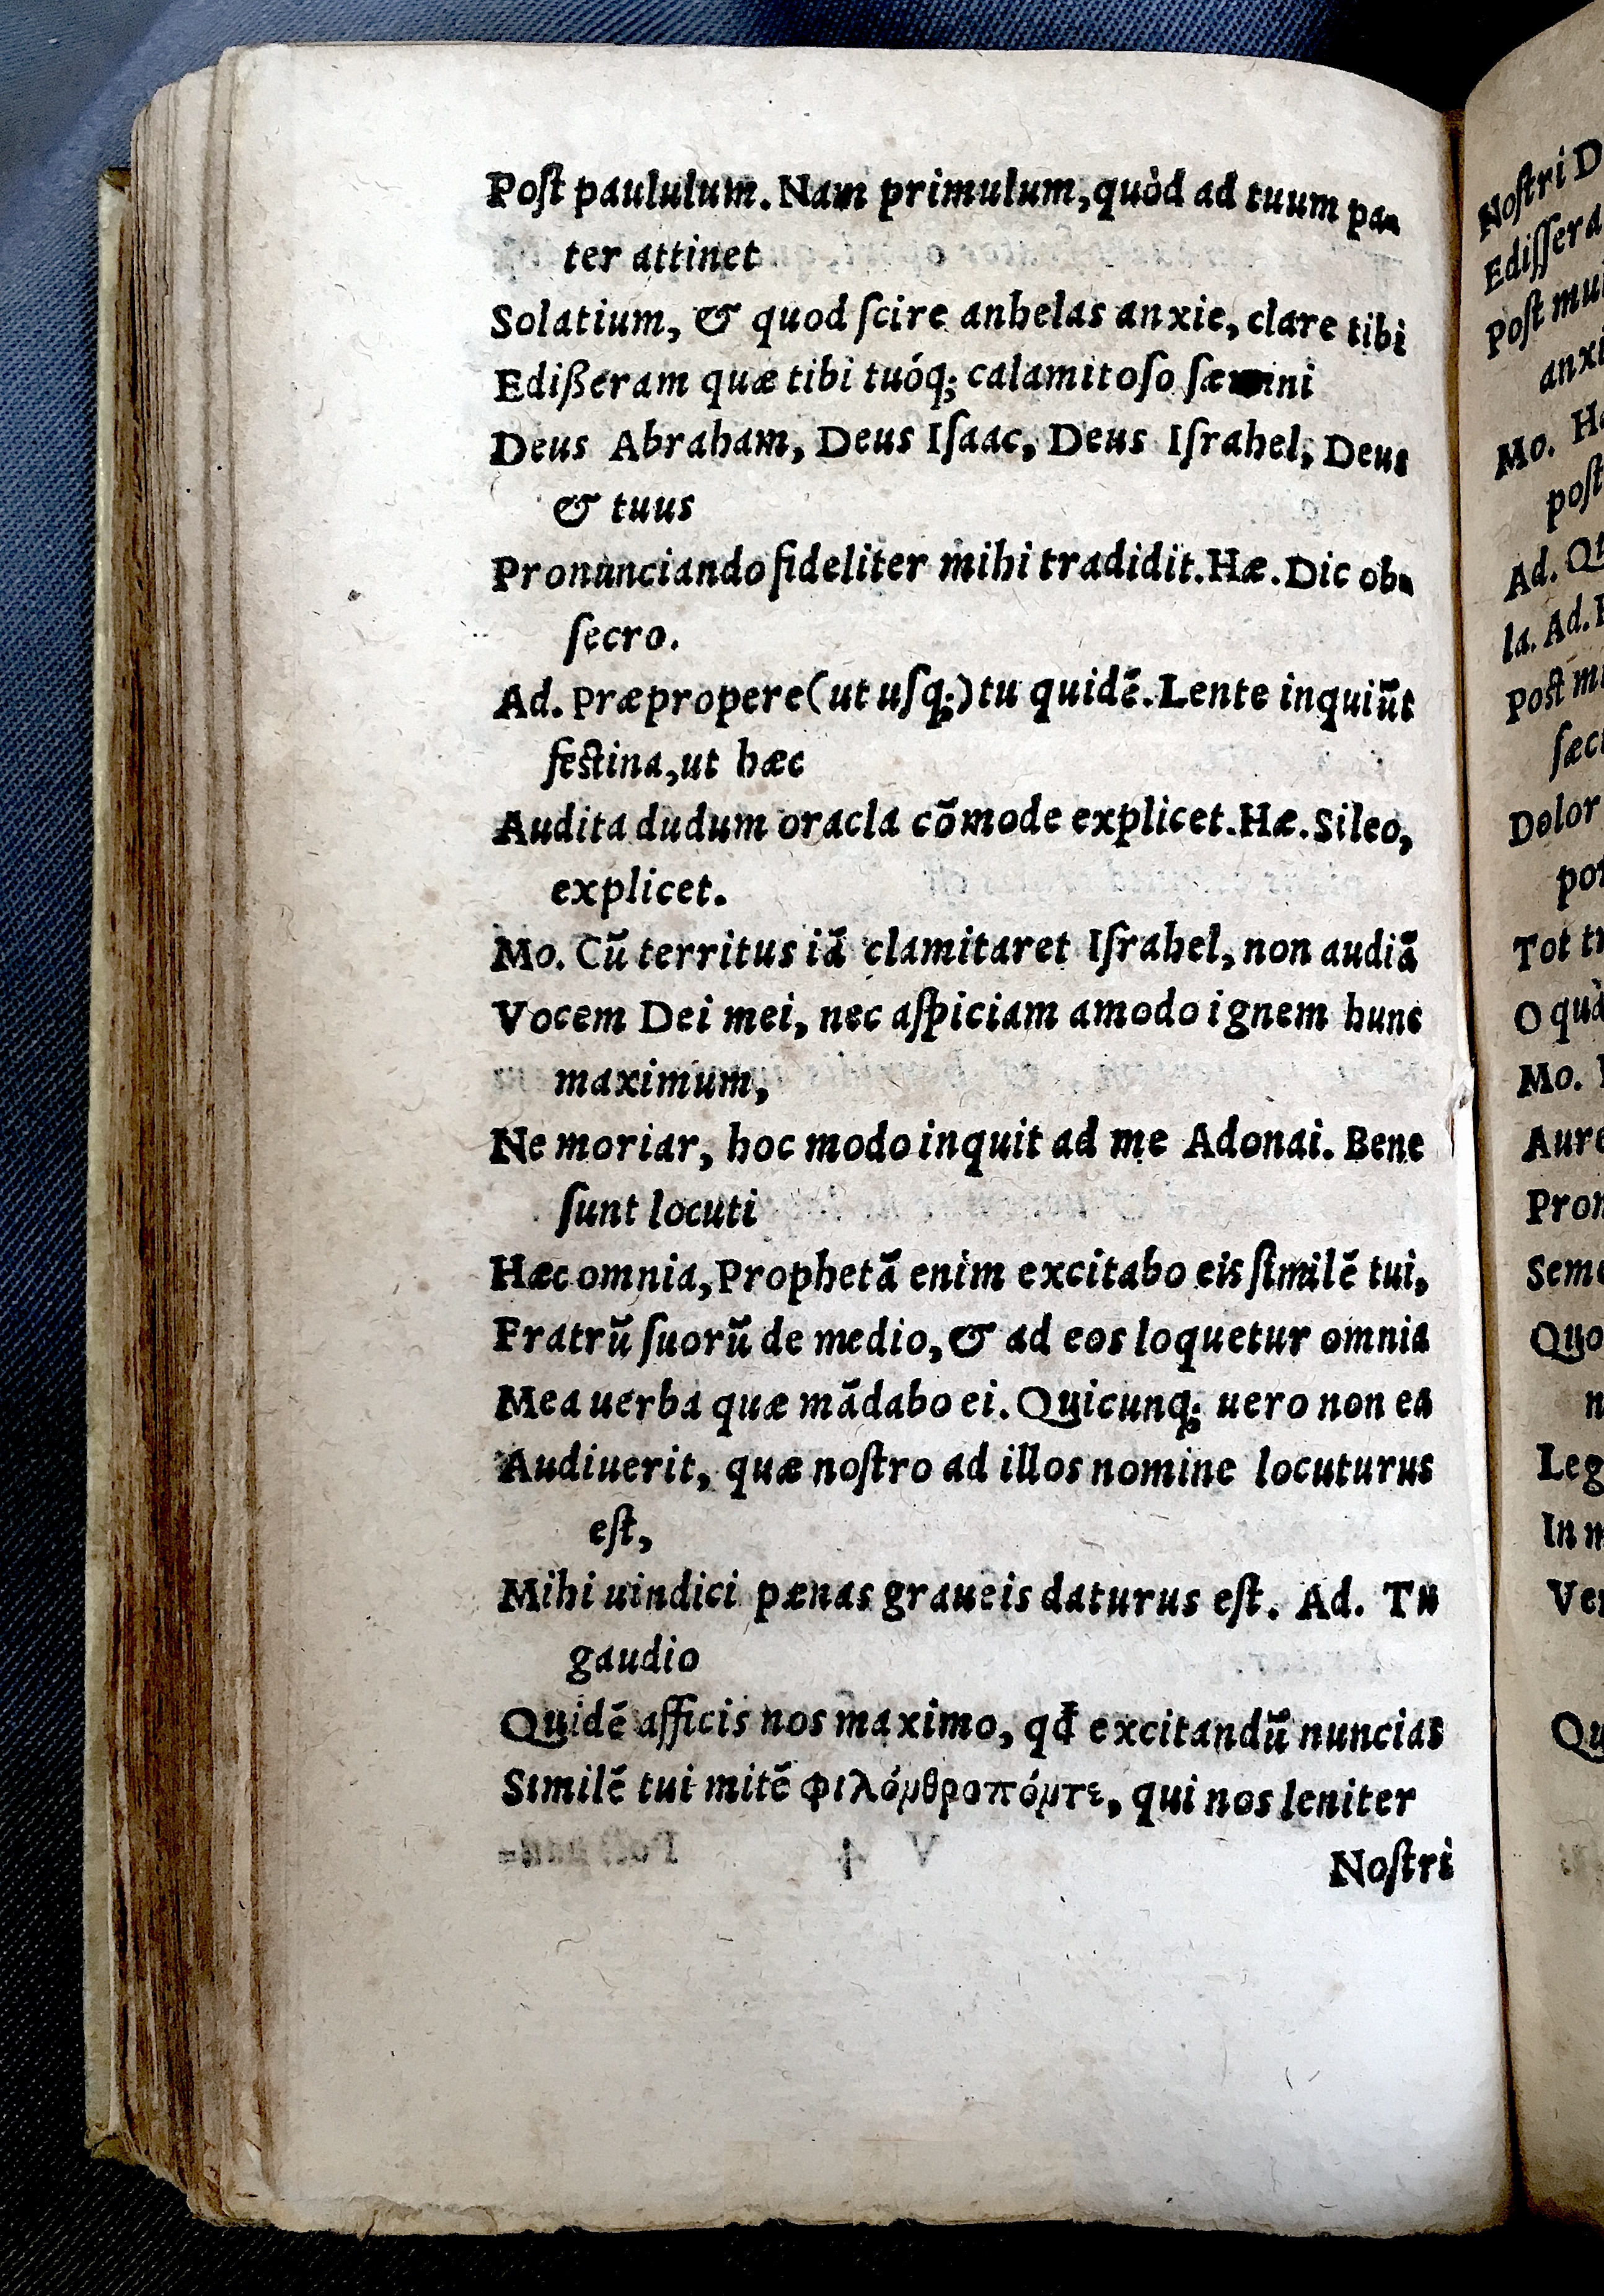 Poſt paululum. Nam primulum, quòd ad tuum pa-
ter attinet
Solatium, & quod ſcire anhelas anxie, clare tibi
Edißeram quæ tibi tuóq; calamitoſo
Deus Abraham, Deus Iſaac, Deus Iſrahel, Deus
& tuus
Pronunciando fideliter mihi tradidit. Hæ. Dic ob-
ſecro.
Ad. Præpropere (ut uſq;) tu quidē. Lente inquiūt
feſtina, ut hæc
Audita dudum oracla cōmode explicet. Hæ. Sileo,
explicet.
Mo. Cū territus iā clamitaret Iſrahel, non audiā
Vocem Dei mei, nec aſpiciam amodo ignem hunc
maximum,
Ne moriar, hoc modo inquit ad me Adonai. Bene
ſunt locuti
Hæc omnia, Prophetā enim excitabo eis ſimilē tui,
Fratrū ſuorū de medio, & ad eos loquetur omnia
Mea uerba quæ mādabo ei. Quicunq; uero non ea
Audiuerit, quæ noſtro ad illos nomine locuturus
eſt,
Mihi uindici pænas graueis daturus eſt. Ad. Tu
gaudio
Quidē afficis nos maximo, qđ excitandū nuncias
Similē tui mitē, qui nos leniter
Noſtri
Noſtri D
Ediſſera
Poſt mul
anxi
Mo. Ha
poſt
Ad. Qu
la. Ad.
Poſt mu
ſæcu
Dolor
por
Tot tr
O quà
Mo.
Aure
Pron
Seme
Quo
n
Leg
In m
Ver
Qu